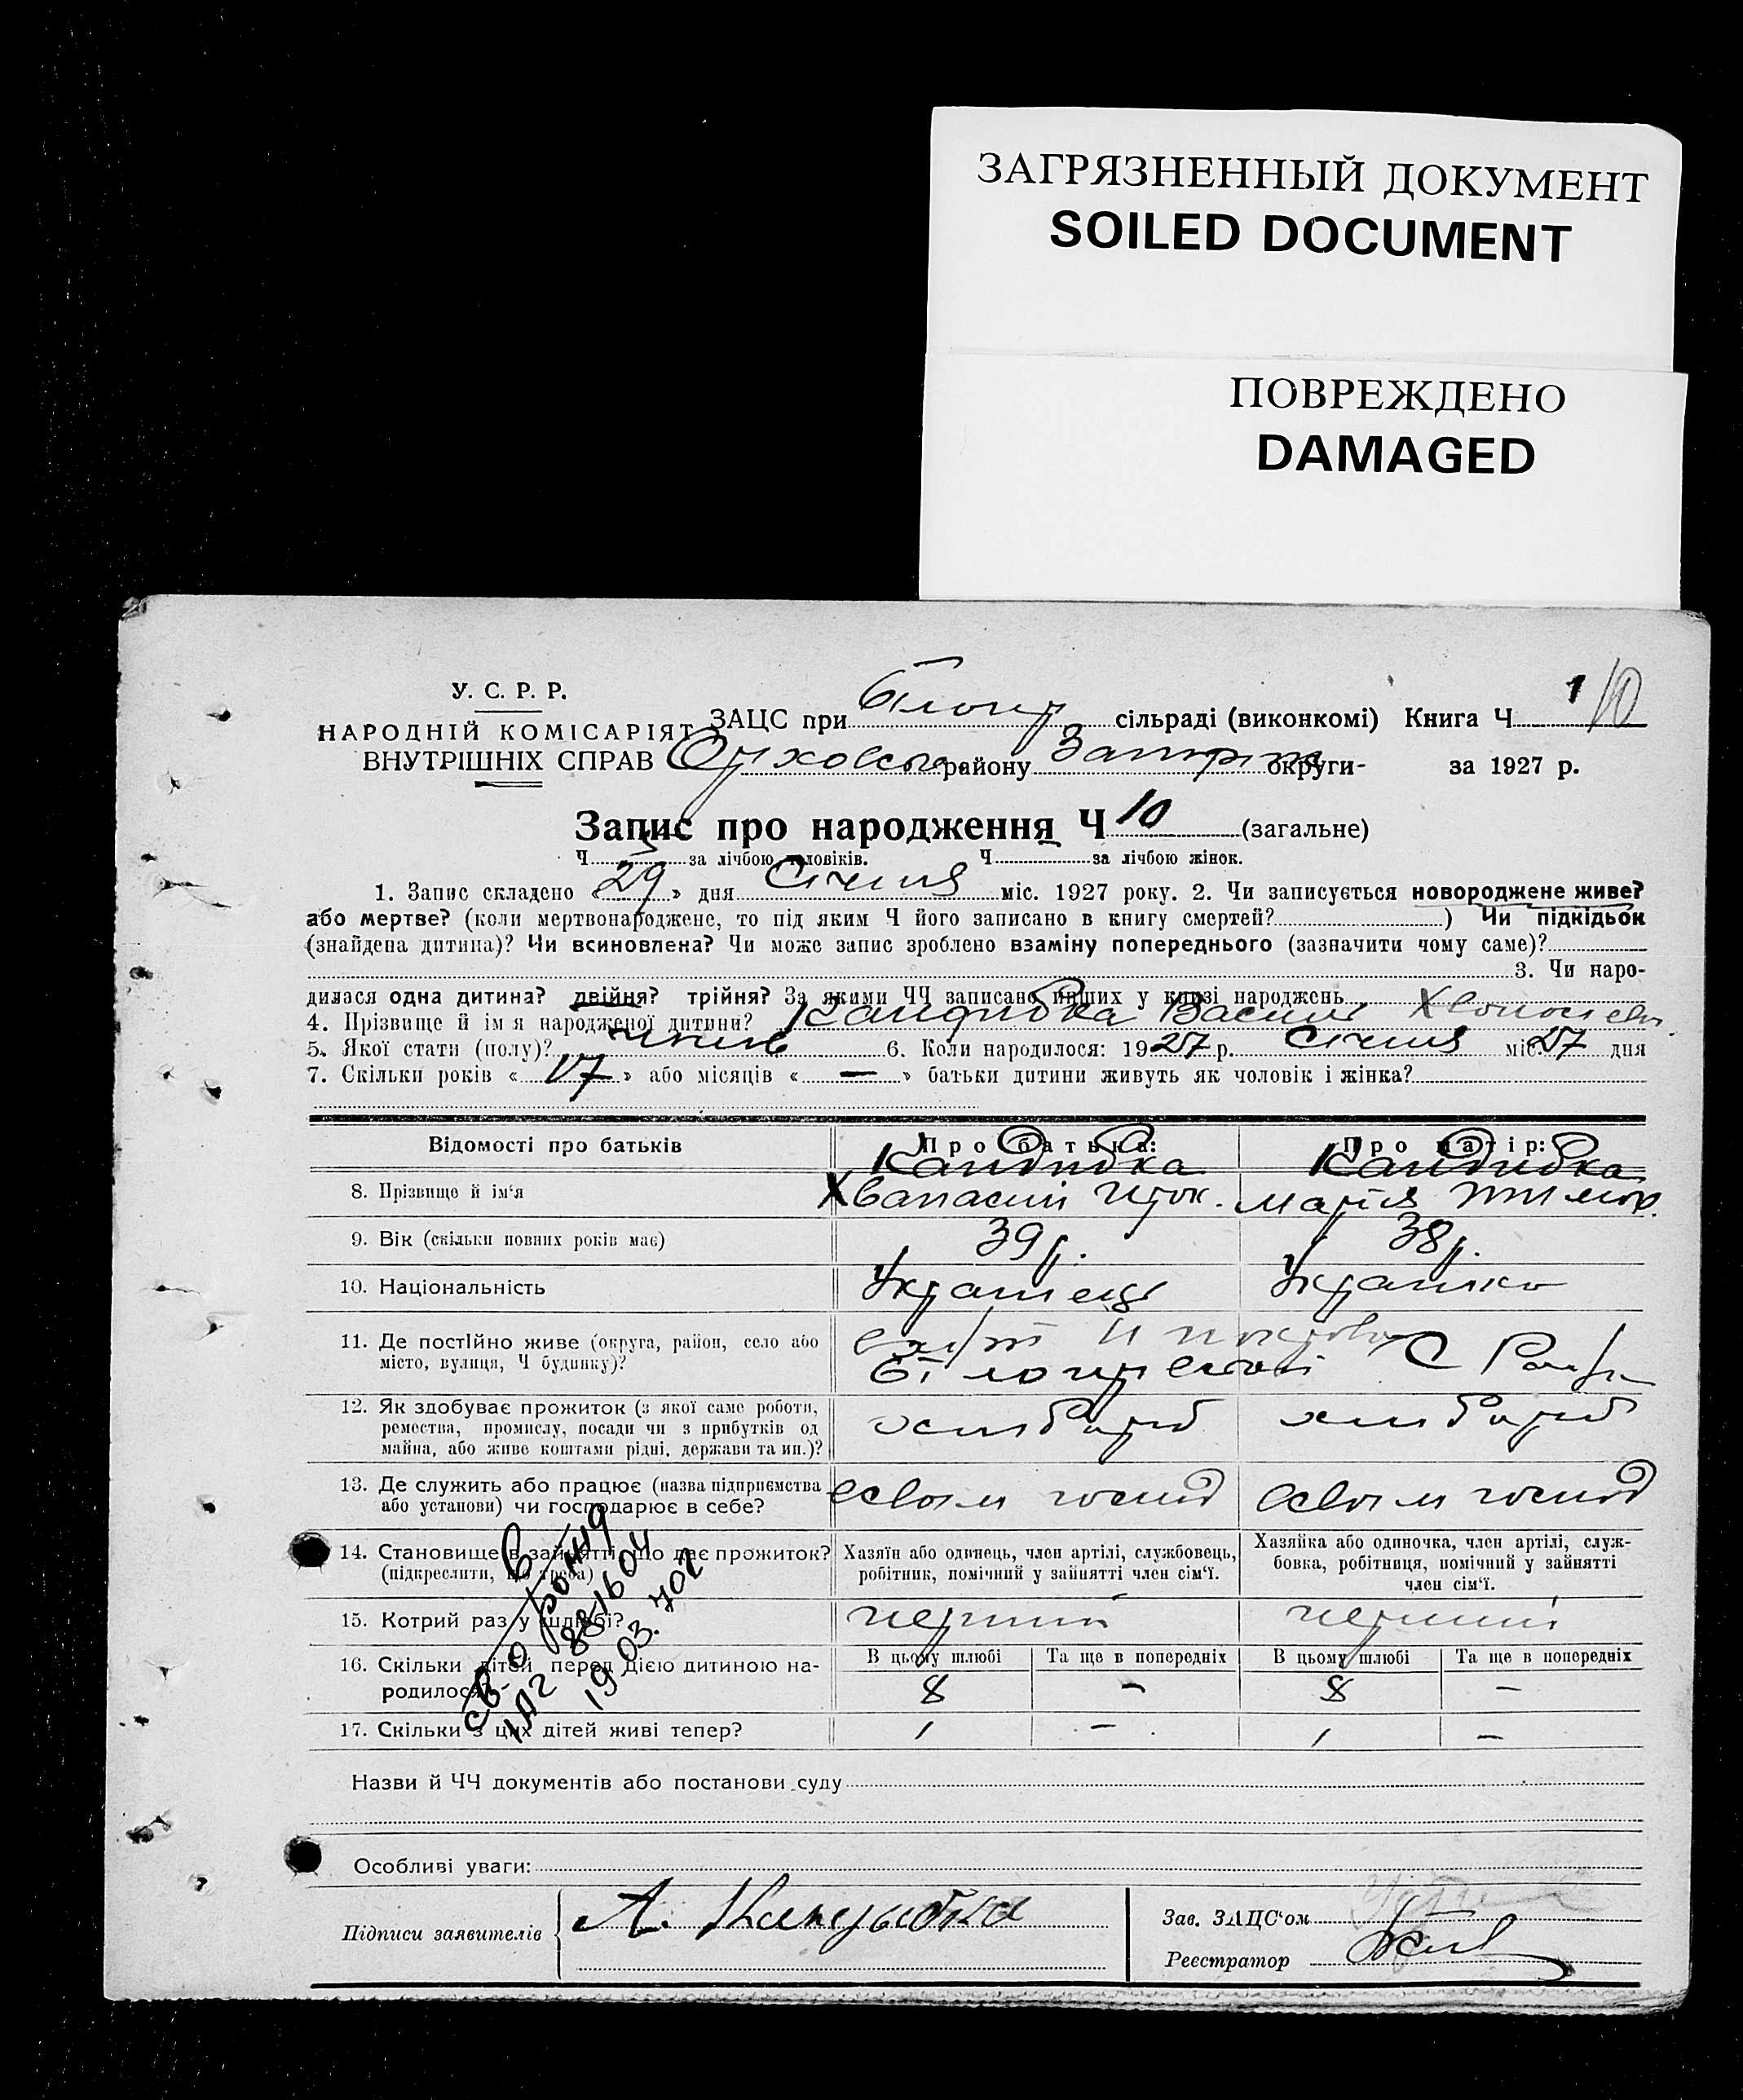 ЗАГРЯЗНЕННЫЙ ДОКУМЕНТ
SOILED DOCUMENT
ПОВРЕЖДЕНО
DAMAGED
У. С. Р. Р.
НАРОДНІЙ КОМІСАРІЯТ
ВНУТРІШНІХ СПРАВ
ЗАЦС при сільраді (виконкомі) Книга Ч 1/10
району округи- за 1927 р.
Запис про народження Ч 10 (загальне)
Ч за лічбою чоловіків. Ч за лічбою жінок.
1. Запис складено « 29 » дня Січня міс. 1927 року. 2. Чи записується новороджене живе?
або мертве? (коли мертвонароджене, то під яким Ч його записано в книгу смертей? ) Чи підкідьок
(знайдена дитина)? Чи всиновлена? Чи може запис зроблено взаміну попереднього (зазначити чому саме)?
3. Чи наро-
дилася одна дитина? двійня? трійня? За якими ЧЧ записано инших у книзі народжень
4. Прізвище й ім я народженої дитини? Кандибка Василь
5. Якої стати (полу)? 6. Коли народилося: 1927 р. Січня міс. 27 дня
7. Скільки років « 17 » або місяців « — » батьки дитини живуть як чоловік і жінка?
Відомості про батьків Про батька: Про матір:
Кандибка Кандибка
8. Прізвище й ім'я Хванасий Марія
9. Вік (скільки повних років має) 39 р. 38 р.
10. Національність Украінець Украінка
11. Де постійно живе (округа, район, село або
місто, вулиця, Ч будинку)?
12. Як здобуває прожиток (з якої саме роботи,
ремества, промислу, посади чи з прибутків од
майна, або живе коштами рідні, держави та ин.)?
хлибороб хлибороб
13. Де служить або працює (назва підприємства
або установи) чи господарює в себе?
14. Становище в занятті, що дає прожиток?
(підкреслити, що треба)
Хазяїн або одинець, член артілі, службовець,
робітник, помічний у зайнятті член сім'ї.
Хазяйка або одиночка, член артілі, служ-
бовка, робітниця, помічний у зайнятті
член сім'ї.
15. Котрий раз у шлюбі? перший перший
16. Скільки дітей перед цією дитиною на-
родилося?
В цьому шлюбі Та ще в попередніх В цьому шлюбі Та ще в попередніх
8 - 8 -
17. Скільки з цих дітей живі тепер? 1 - 1 -
19.03.
Назви й ЧЧ документів або постанови суду
Особливі уваги:
Підписи заявителів
Зав. ЗАЦС'ом
Реєстратор